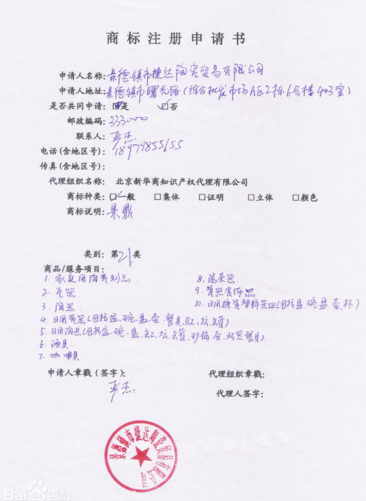 商标注册申请书
申请人名称:景德镇市捷达陶瓷贸易有限公司
申请人地址:景德镇市曙光路(综合批发市场A区2栋6号楼403室)
是否共同申请:□是 □否
邮政编码:333000
联系人:
电话(含地区号):18979855655
传真(含地区号):
代理组织名称:北京新华商知识产权代理有限公司
商标种类:□一般 □集体 □证明 □立体 □颜色
商标说明:景鼎
类别:第21类
商品/服务项目:
1. 家庭用陶瓷制品
2. 瓷器
3. 陶器
4. 日用瓷器(包括盆、碗、盘、壶、餐具、缸、坛、罐)
5. 日用陶器(包括盆、碗、盘、缸、坛、罐、砂锅、壶、炊器餐具)
6. 酒具
7. 咖啡具
8. 湯茶器
9. 瓷器装饰品
10. 日用搪瓷塑料器皿(包括盆、碗、盘、壶、杯)
申请人章戳(签字): 代理组织章戳:
代理人签字:
景德镇市捷达陶瓷贸易有限公司
Bai 百科